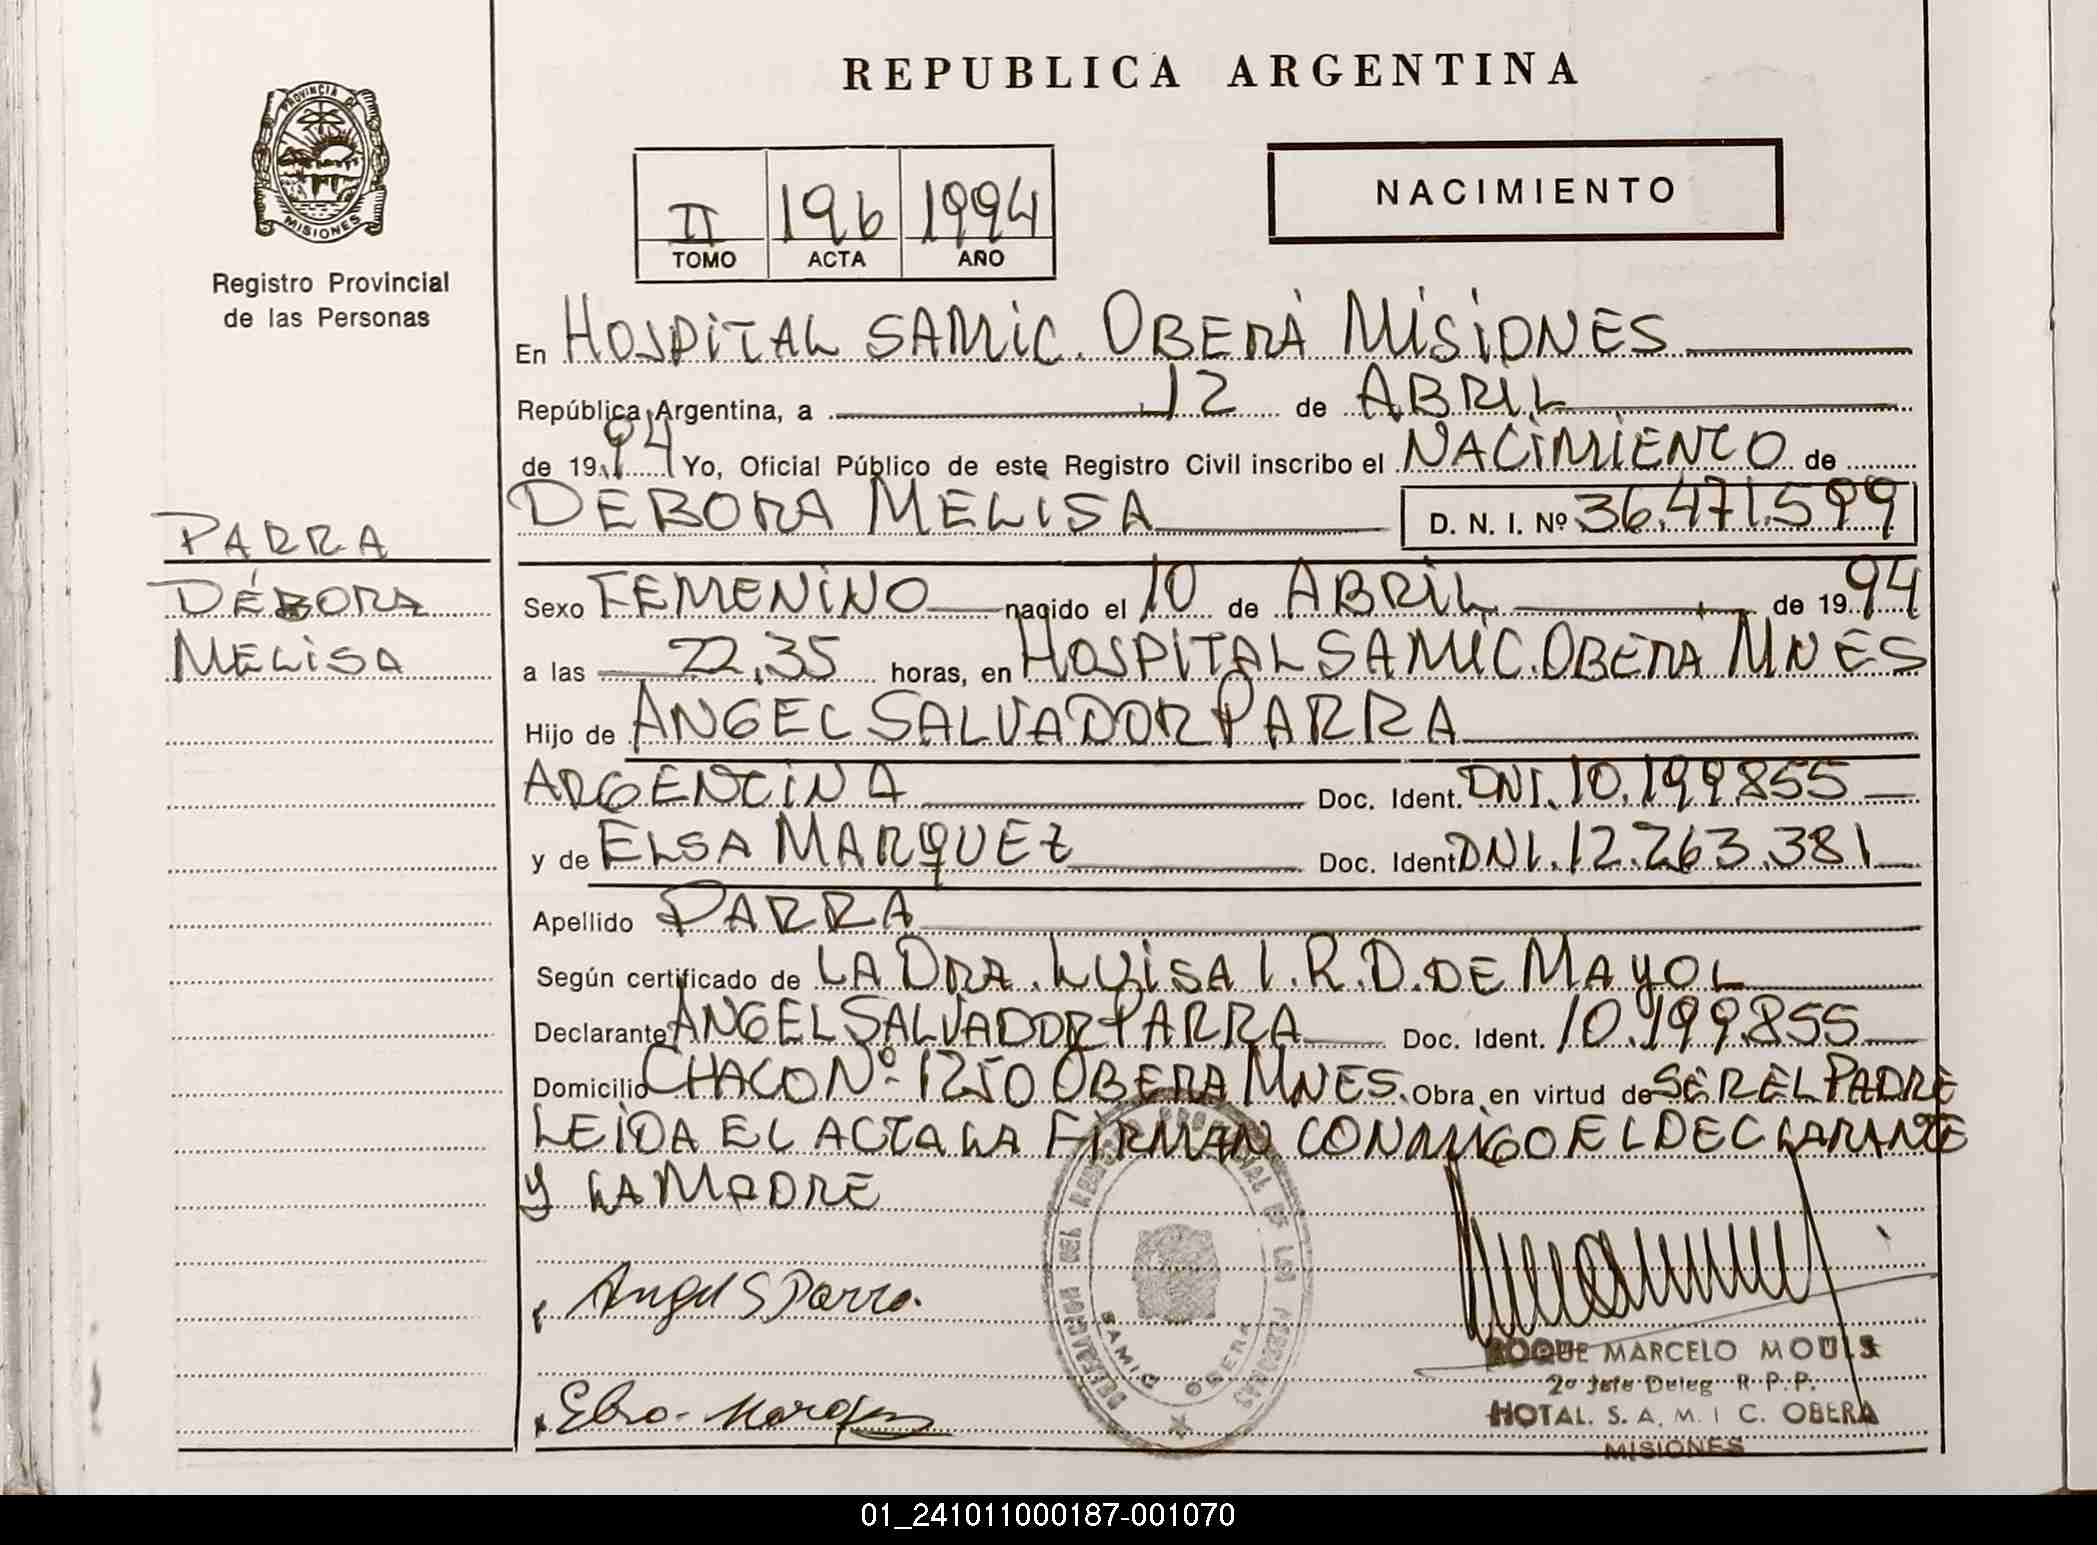 REPUBLICA ARGENTINA
PROVINCIA DE
MISIONES
Registro Provincial
de las Personas
II 196 1994
TOMO ACTA AÑO
NACIMIENTO
En HOSPITAL SAMIC. OBERÁ MISIONES
República Argentina, a 12 de ABRIL
de 1994 Yo, Oficial Público de este Registro Civil inscribo el NACIMIENTO de
DEBORA MELISA D. N. I. Nº 36.471.599
PARRA
DÉBORA
MELISA
Sexo FEMENINO nacido el 10 de ABRIL de 1994
a las 22,35 horas, en HOSPITAL SAMIC. OBERA MNES
Hijo de ANGEL SALVADOR PARRA
ARGENTINA Doc. Ident. DNI. 10.199855
y de ELSA MARQUEZ Doc. Ident DNI. 12.263.381
Apellido PARRA
Según certificado de LA DRA. LUISA I. R. D. DE MAYOL
Declarante ANGEL SALVADOR PARRA Doc. Ident. 10.199.855
Domicilio CHACO Nº 1250 OBERA MNES. Obra en virtud de SER EL PADRE
LEIDA EL ACTA LA FIRMAN CONMIGO EL DECLARANTE
Y LA MADRE
Angel S Parra.
Elsa - Marquez
DELEGACION DEL REGISTRO PROVINCIAL DE LAS PERSONAS
SAMIC OBERA
ROQUE MARCELO MOULS
2º Jefe Deleg R. P. P.
HOTAL. S. A. M. I C. OBERA
MISIONES
01_241011000187-001070